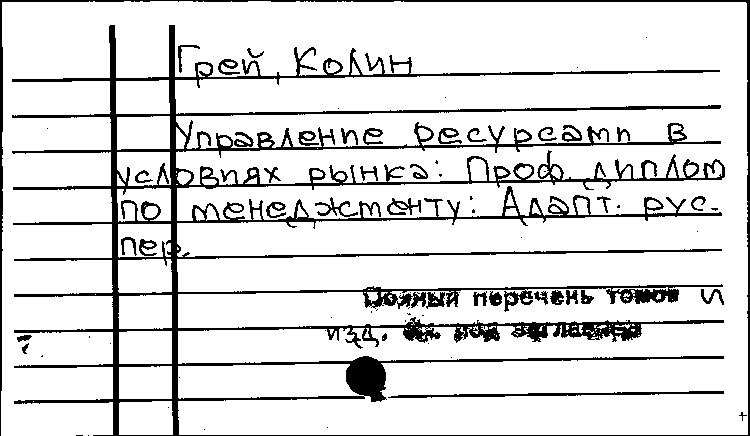 Грей, Колин
Управление ресурсами в
условиях рынка: Проф. диплом
по менеджменту: Адапт. рус.
пер.
Полный перечень томов и
изд. см. под заглавием